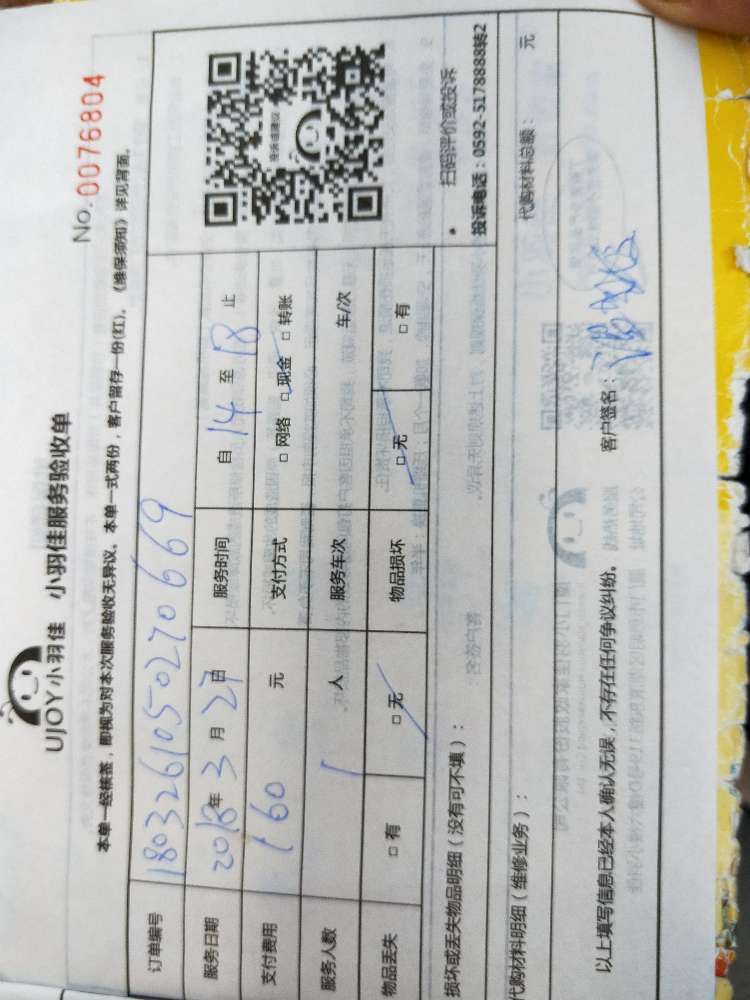 UJOY小羽佳 小羽佳服务验收单
No. 0076804
本单一经核签，即视为对本次服务验收无异议。本单一式两份，客户留存一份(红)。《维保须知》详见背面。
订单编号 180326105027 0669
服务日期 2018年 3 月 27日 服务时间 自 14 至 18 止
支付费用 160 元 支付方式 □ 网络 □ 现金 □ 转账
服务人数 1 人 服务车次 车/次
物品丢失 □ 有 □ 无 物品损坏 □ 无 □ 有
投诉或建议
扫码评价或投诉
投诉电话：0592-5178888转2
损坏或丢失物品明细（没有可不填）：
代购材料明细（维修业务）： 代购材料总额： 元
以上填写信息已经本人确认无误，不存在任何争议纠纷。 客户签名：